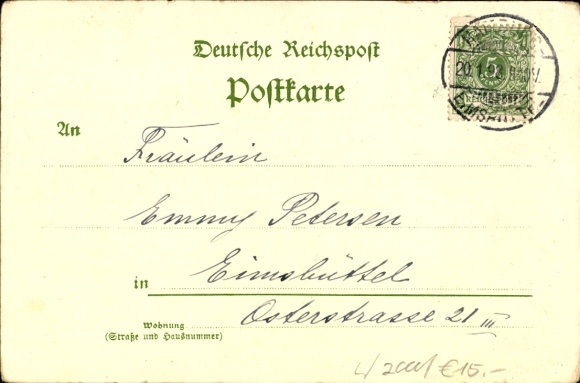 Deutsche Reichspost
Postkarte
An
Fräulein
Emmy Petersen
in Eimsbüttel
Osterstrasse 21 III
Wohnung
(Straße und Hausnummer)
5
€15.-